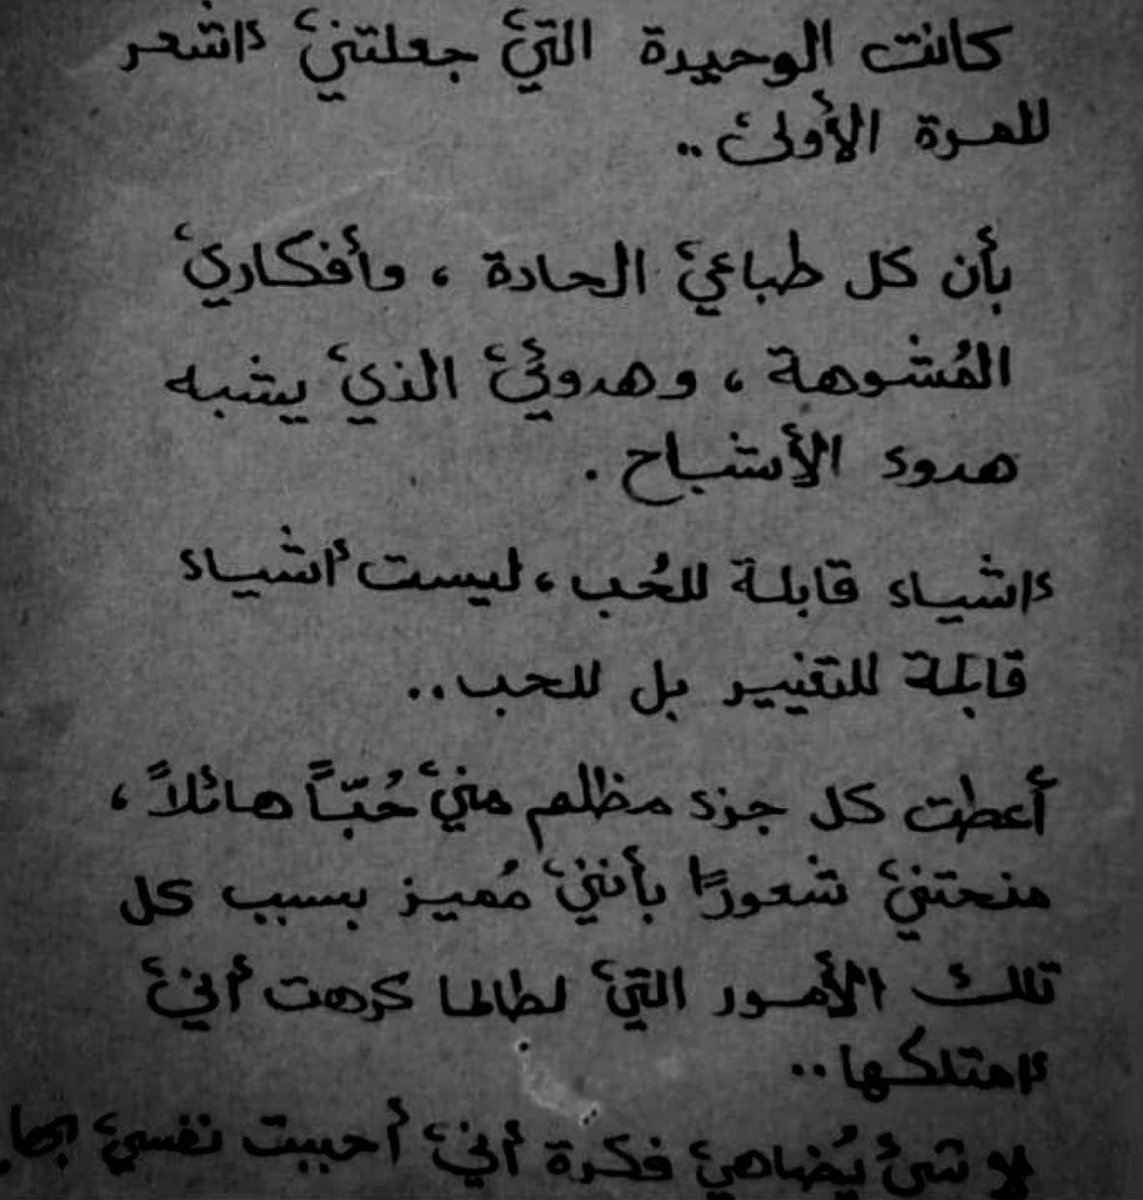 كانت الوحيدة التي جعلتني أشعر
للمرة الأولى..
بأن كل طباعي الحادة ، وأفكاري
المُشوهة ، وهدوئي الذي يشبه
هدوء الأشباح .
أشياء قابلة للحُب ، ليست أشياء
قابلة للتغيير بل للحب..
أعطت كل جزء مظلم مني حُبّاً هائلاً ،
منحتني شعورًا بأنني مُميز بسبب كل
تلك الأمور التي لطالما كرهت أني
أمتلكها..
لا شيء يُضاهي فكرة أني أحببت نفسي بها.